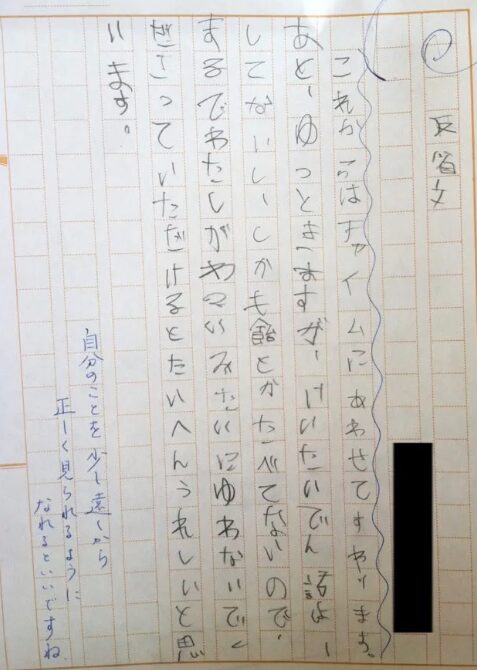 反省文
これからはチャイムにあわせてすわります。
あと、ゆっときますが、けいたいでん話は、
してないし、しかも飴とかたべてないので、
まるでわたしがわるいみたいにゆわないでく
ださっていただけるとたいへんうれしいと思
います。
自分のことを少し遠くから
正しく見られるように
なれるといいですね。